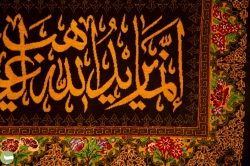 إنما يريد الله ليذهب